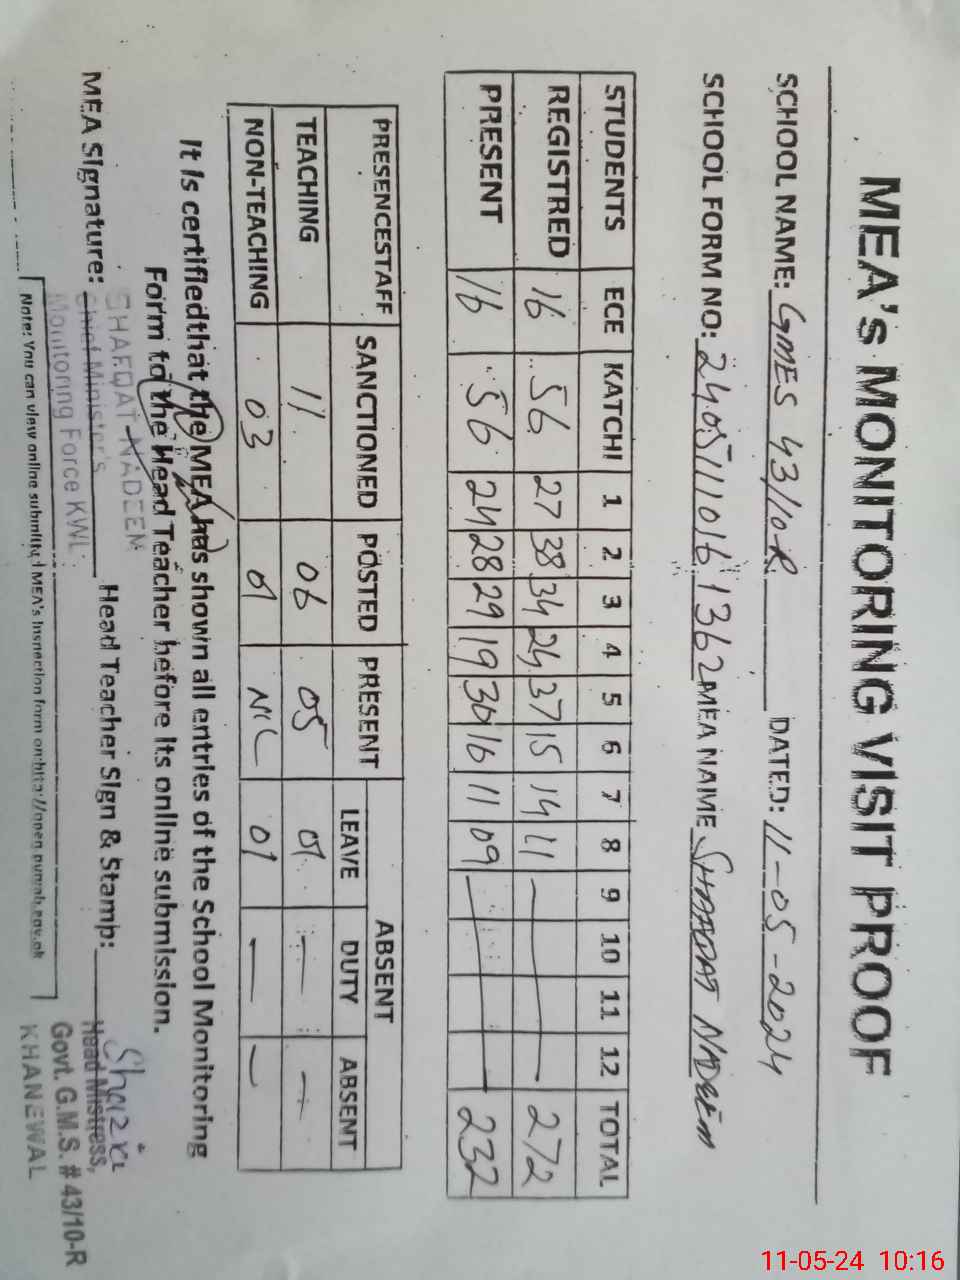 MEA's MONITORING VISIT PROOF
SCHOOL NAME: GMES 43/10R DATED: 11-05-2024
SCHOOL FORM NO: 24051110161362 MEA NAME SHAFDAT NADEEM
STUDENTS ECE KATCHI 1 2 3 4 5 6 7 8 9 10 11 12 TOTAL
REGISTRED 16 56 27 38 34 24 37 15 14 11 272
PRESENT 16 56 24 28 29 19 30 16 11 09 232
PRESENCESTAFF SANCTIONED POSTED PRESENT ABSENT
LEAVE DUTY ABSENT
TEACHING 11 06 05 01 — —
NON-TEACHING 03 01 NIL 01 — —
It is certifiedthat the MEA has shown all entries of the School Monitoring
Form to the Head Teacher before its online submission.
MEA Signature: Head Teacher Sign & Stamp:
SHAFDAT NADEEM
Chief Minister's
Monitoring Force KWL.
Head Mistress,
Govt. G.M.S. # 43/10-R
KHANEWAL
Note: You can view online submitted MEA's Inspection form on:http://open.punjab.gov.pk
11-05-24 10:16